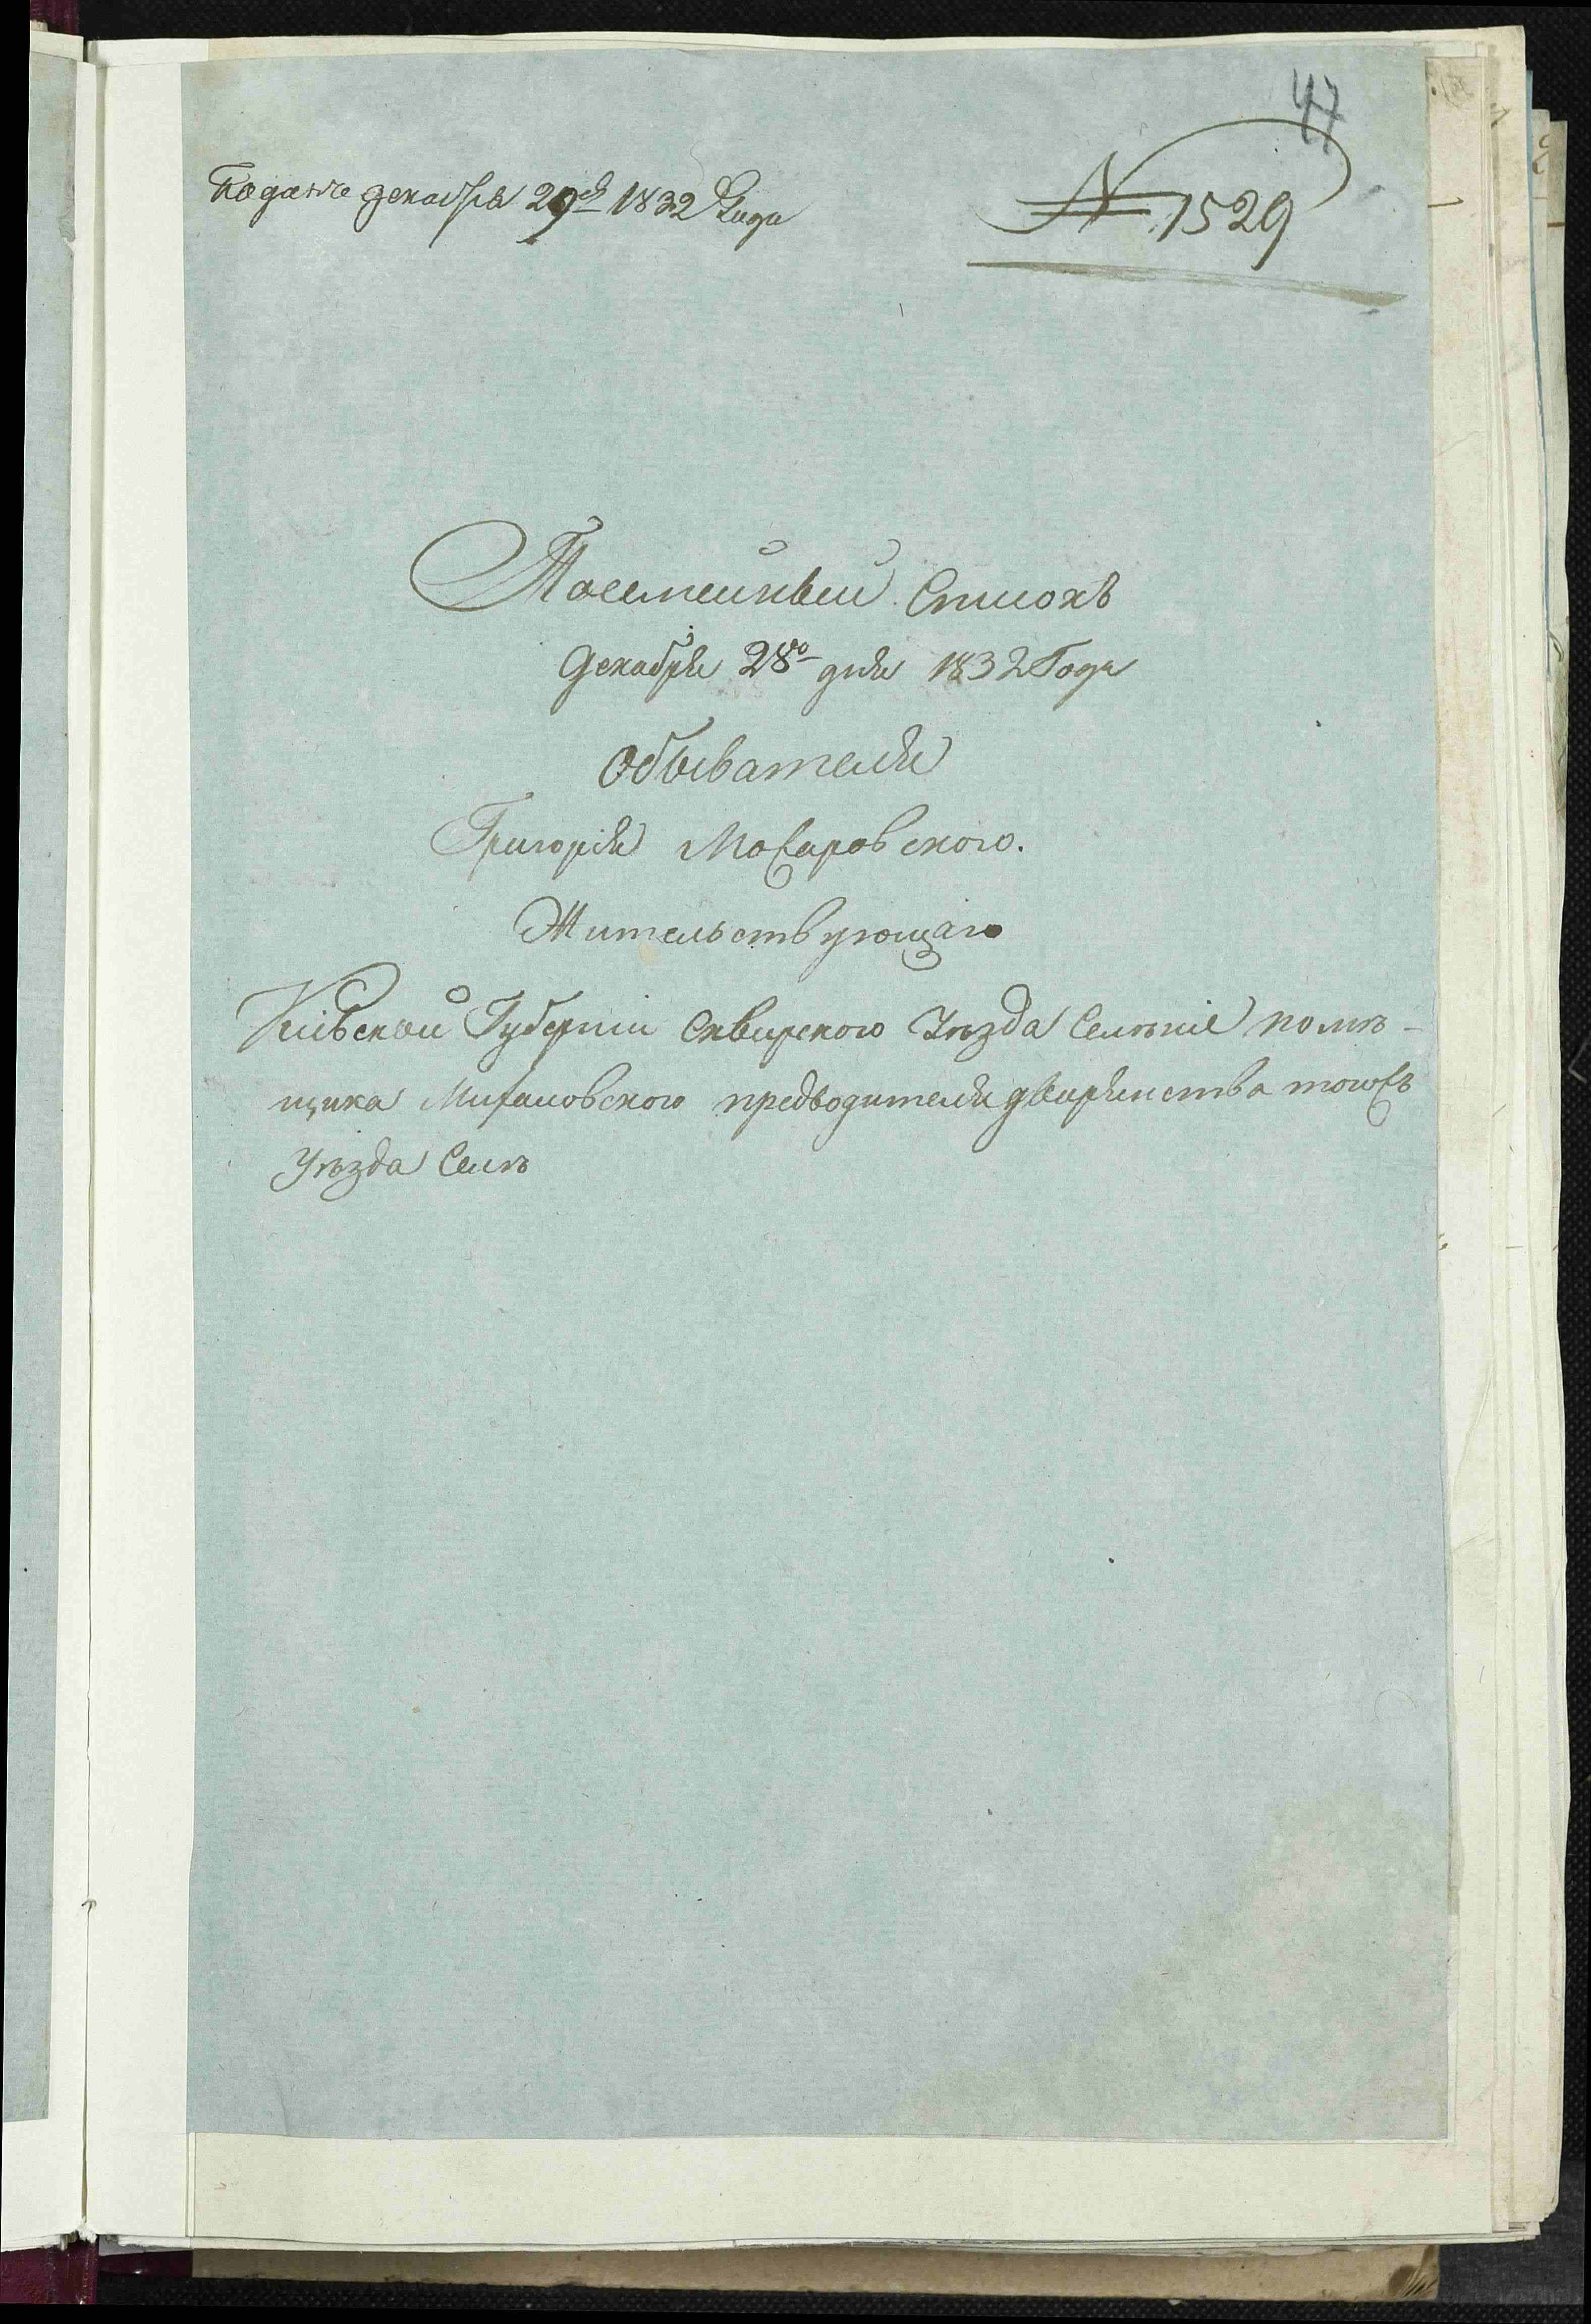 47
Поданъ декабря 29го 1832 Года
№ 1529
Посемейный Списокъ
Декабря 28го дня 1832 Года
Обывателя
ГригоріяМожаровского.
Жительствующаго
Кіевской Губерніи Сквирского Уѣзда Селѣніе помѣ-
щика предводителя дворянства тогожъ
Уѣзда Селѣ